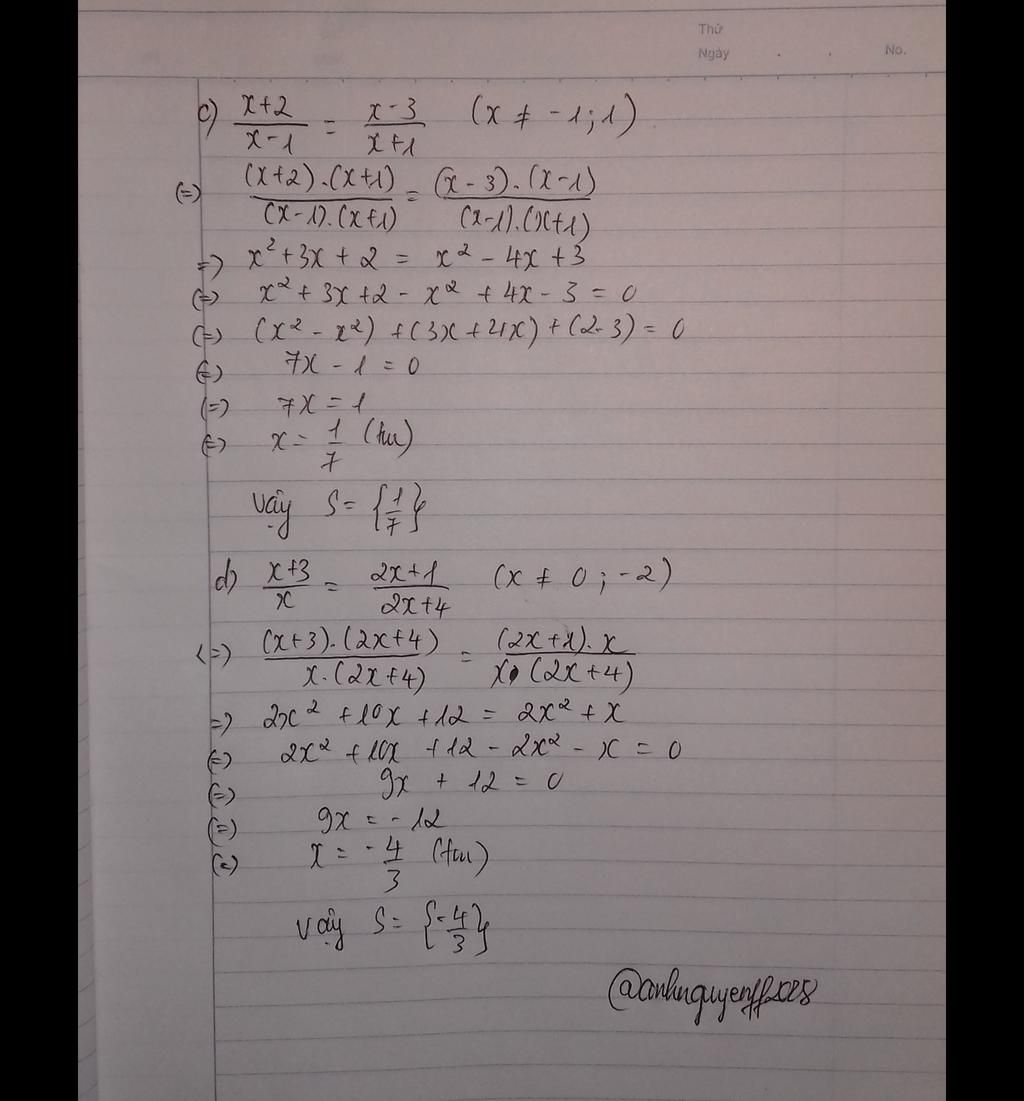 Thứ
Ngày . . No.
c) \frac{x+2}{x-1} = \frac{x-3}{x+1} (x ≠ -1; 1)
(=) \frac{(x+2).(x+1)}{(x-1).(x+1)} = \frac{(x-3).(x-1)}{(x-1).(x+1)}
=) x² + 3x + 2 = x² - 4x + 3
(=) x² + 3x + 2 - x² + 4x - 3 = 0
(=) (x² - x²) + (3x + 4x) + (2-3) = 0
(=) 7x - 1 = 0
(=) 7x = 1
(=) x = \frac{1}{7} (tm)
Vậy S = {\frac{1}{7}}
d) \frac{x+3}{x} = \frac{2x+1}{2x+4} (x ≠ 0; -2)
<=) \frac{(x+3).(2x+4)}{x.(2x+4)} = \frac{(2x+1).x}{x.(2x+4)}
=) 2x² + 10x + 12 = 2x² + x
(=) 2x² + 10x + 12 - 2x² - x = 0
(=) 9x + 12 = 0
(=) 9x = -12
(=) x = -\frac{4}{3} (tm)
Vậy S = {-\frac{4}{3}}